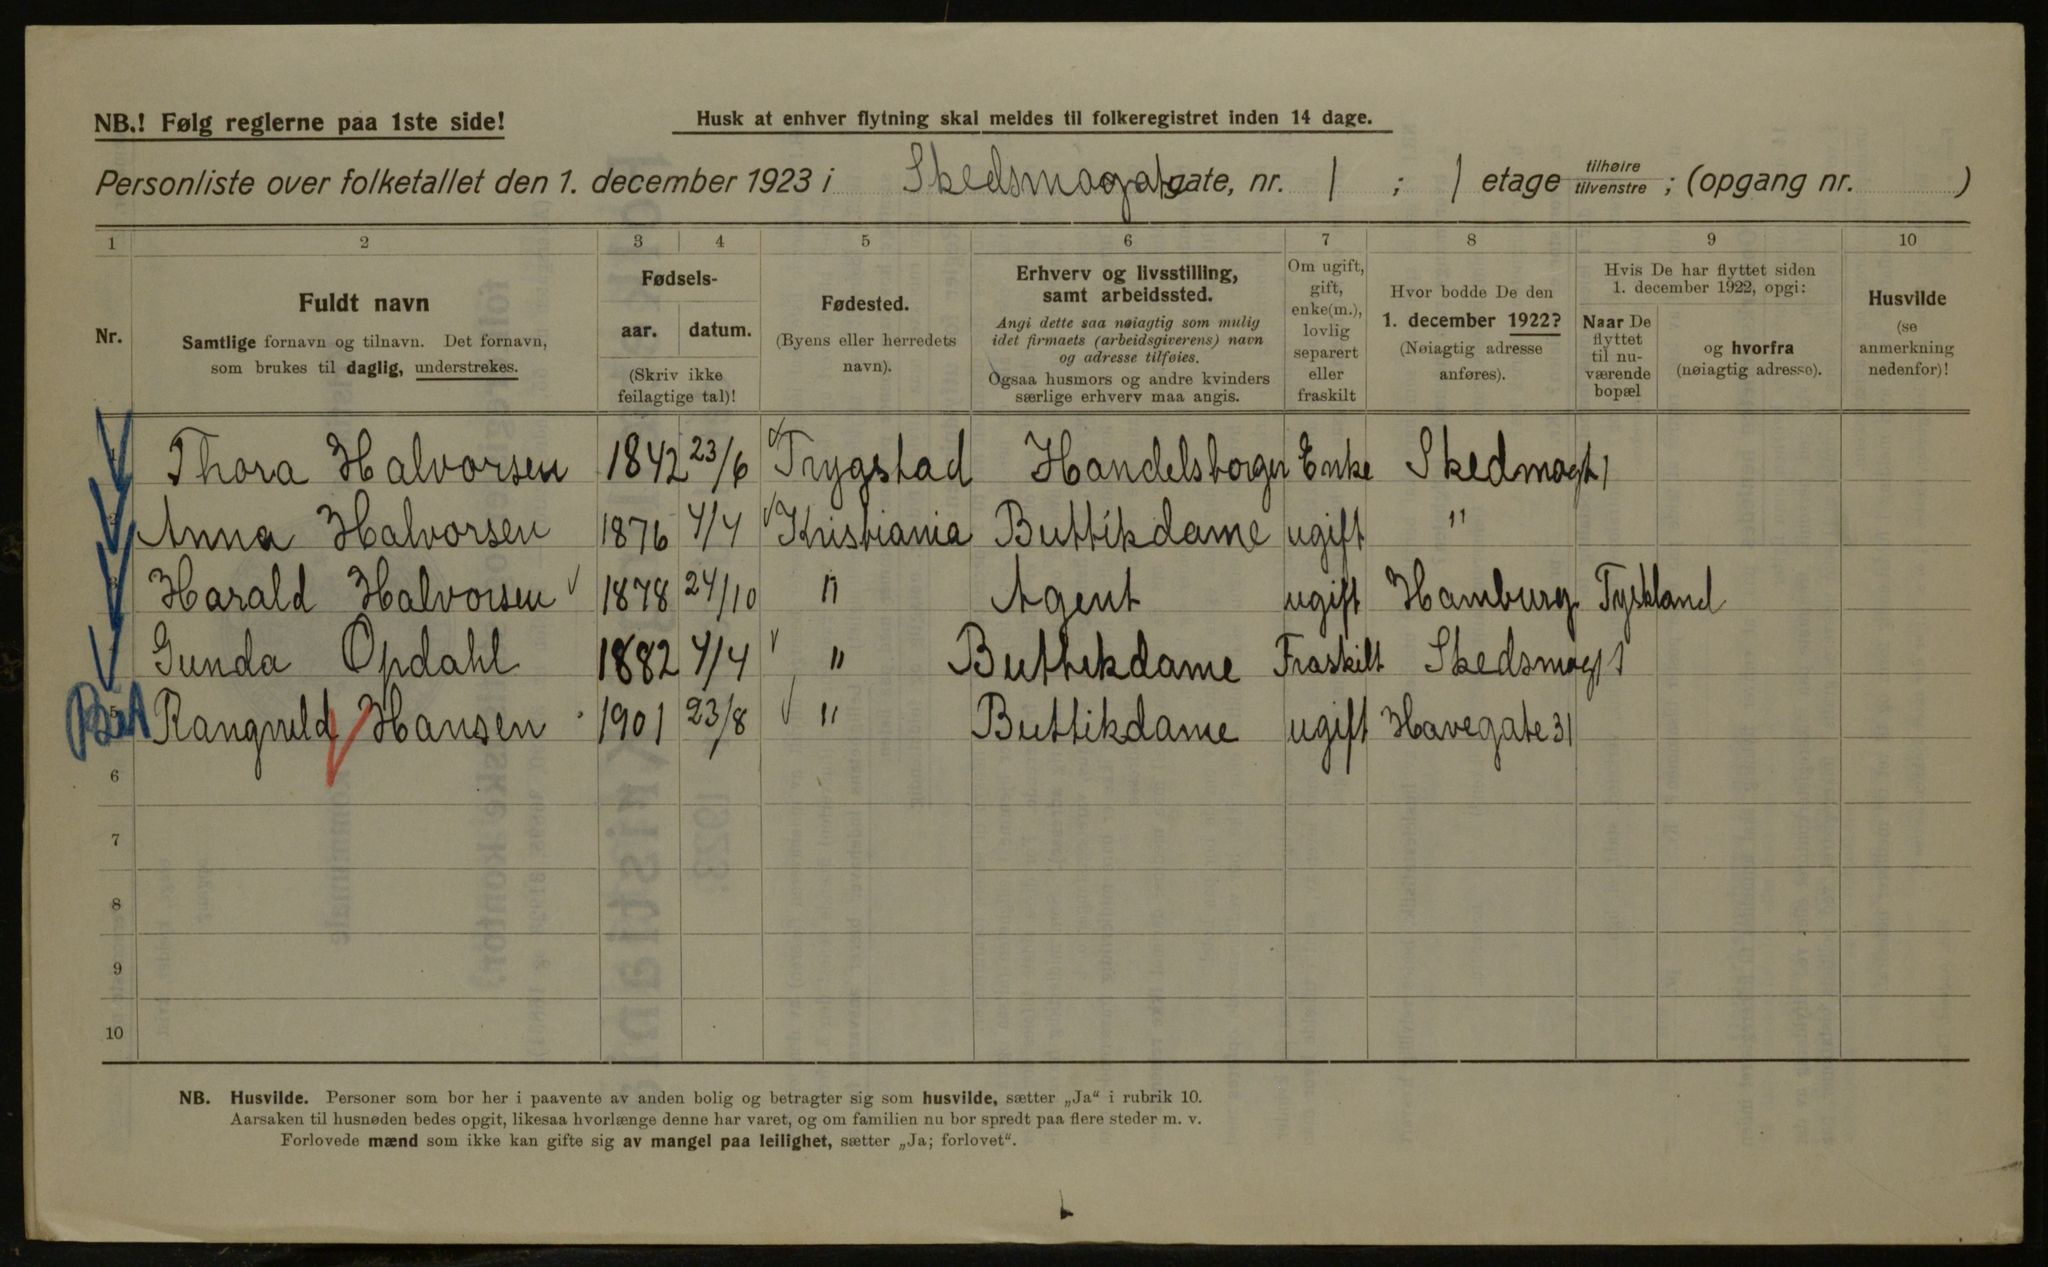 NB.! Følg reglerne paa 1ste side!
Husk at enhver flytning skal meldes til folkeregistret inden 14 dage.
Personliste over folketallet den 1. december 1923 i Skedsmogate gate, nr. 1 ; 1 etage tilhøire tilvenstre ; (opgang nr. )
1 2 3 4 5 6 7 8 9 10
Nr.
Fuldt navn
Samtlige fornavn og tilnavn. Det fornavn,
som brukes til daglig, understrekes.
Fødsels-
aar. datum.
(Skriv ikke
feilagtige tal)!
Fødested.
(Byens eller herredets
navn).
Erhverv og livsstilling,
samt arbeidssted.
Angi dette saa nøiagtig som mulig
idet firmaets (arbeidsgiverens) navn
og adresse tilføies.
Ogsaa husmors og andre kvinders
særlige erhverv maa angis.
Om ugift,
gift,
enke(m.),
lovlig
separert
eller
fraskilt
Hvor bodde De den
1. december 1922?
(Nøiagtig adresse
anføres).
Hvis De har flyttet siden
1. december 1922, opgi:
Naar De
flyttet
til nu-
værende
bopæl
og hvorfra
(nøiagtig adresse).
Husvilde
(se
anmerkning
nedenfor)!
Thora Halvorsen 1842 23/6 Trygstad Handelsborger Enke Skedmogt 1
Anna Halvorsen 1876 4/4 Kristiania Buttikdame ugift "
Harald Halvorsen 1878 24/10 " Agent ugift Hamburg Tyskland
Gunda Opdahl 1882 4/4 " Buttikdame Fraskilt Skedsmogt 1
5 Rangvild Hansen 1901 23/8 " Buttikdame ugift Havegate 31
6
7
8
9
10
NB. Husvilde. Personer som bor her i paavente av anden bolig og betragter sig som husvilde, sætter „Ja“ i rubrik 10.
Aarsaken til husnøden bedes opgit, likesaa hvorlænge denne har varet, og om familien nu bor spredt paa flere steder m. v.
Forlovede mænd som ikke kan gifte sig av mangel paa leilighet, sætter „Ja; forlovet“.